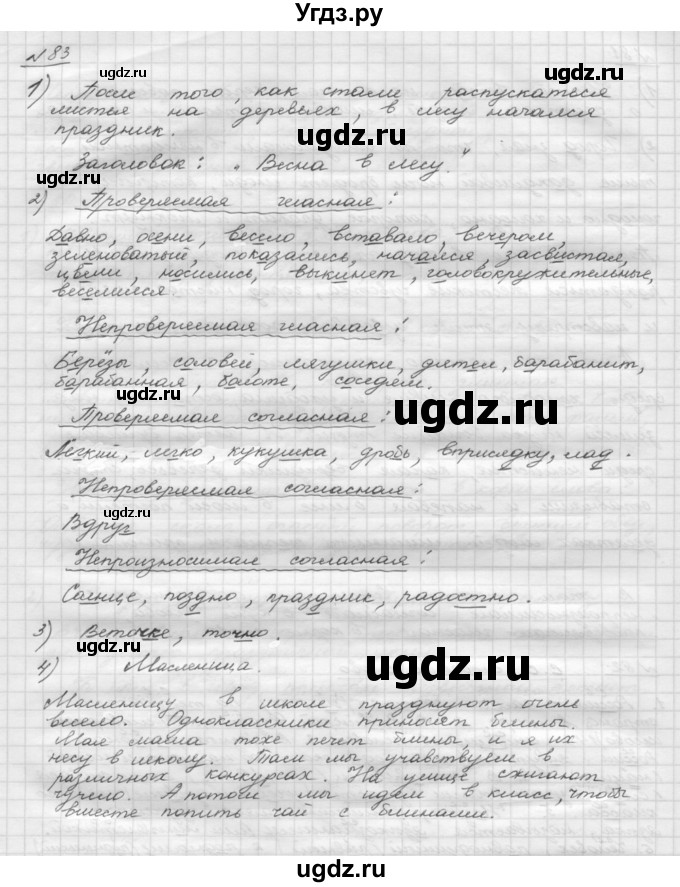 Угдз.ру
№83
1) После того, как стали распускаться
листья на деревьях, в лесу начался
праздник.
ugdz.ru
Заголовок: „Весна в лесу."
ugdz.ru
2) Проверяемая гласная:
ugdz.ru
Давно, осени, весело, вставало, вечером,
зеленоватый, показались, начался, засвистал,
цвели, носились, выкинет, головокружительные,
веселишься.
ugdz.ru
Непроверяемая гласная:
Берёзы, соловей, лягушки, дятел, барабанит,
барабанная, болоте, соседям.
ugdz.ru
Проверяемая согласная:
ugdz.ru
Лёгкий, легко, кукушка, дробь, вприсядку, лад.
Непроверяемая согласная:
ugdz.ru
Вдруг
Непроизносимая согласная:
ugdz.ru
Солнце, поздно, праздник, радостно.
3) Веточке, точно.
ugdz.ru
4) Масленица.
ugdz.ru
Масленицу в школе празднуют очень
весело. Одноклассники приносят блины.
Моя мама тоже печет блины, и я их
несу в школу. Там мы участвуем в
различных конкурсах. На улице сжигают
чучело. А потом мы идём в класс, чтобы
ugdz.ru
вместе попить чай с блинами.
ugdz.ru